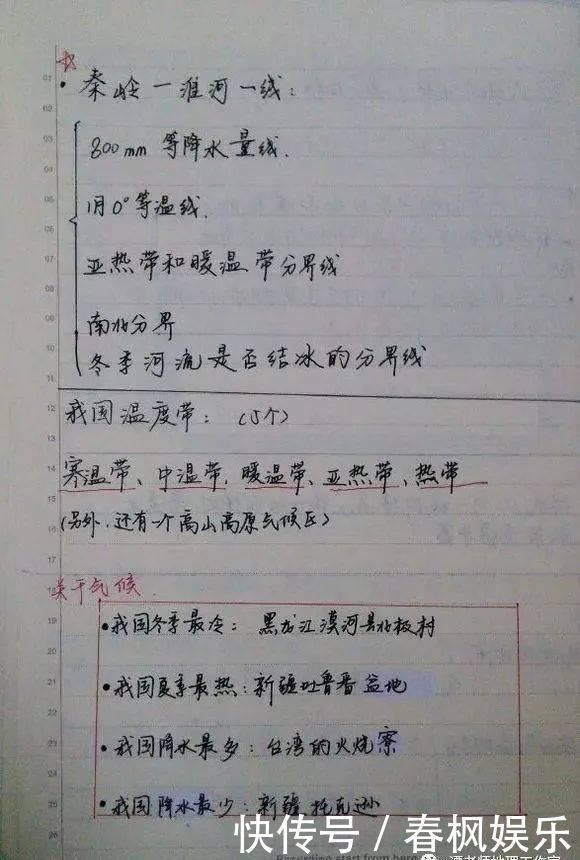 秦岭一淮河一线:
800mm 等降水量线.
1月0°等温线.
亚热带和暖温带分界线
南北分界
冬季河流是否结冰的分界线
我国温度带: (5个)
寒温带、中温带、暖温带、亚热带、热带
(另外,还有一个高山高原气候区)
关于气候.
•我国冬季最冷: 黑龙江漠河县北极村
•我国夏季最热: 新疆吐鲁番盆地
•我国降水最多: 台湾的火烧寮
•我国降水最少: 新疆托克逊
快传号 / 春枫娱乐